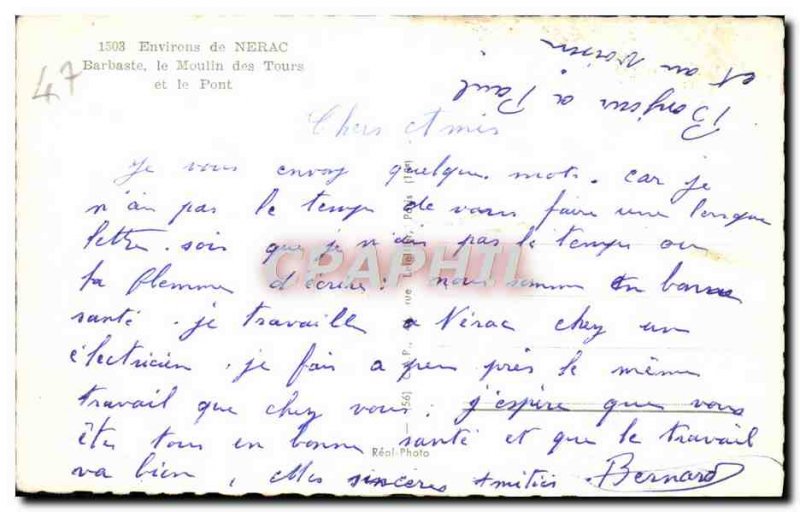 1503 Environs de NERAC
Barbaste, le Moulin des Tours
et le Pont
47
Bonjour à Paul
et au voisin
Chers Amis
Je vous envoy quelque mots. car je
n'ai pas le temps de vous faire une longue
lettre. soit que je n'ai pas le temps ou
la flemme d'écrire: nous somme en bonne
santé. je travaille a Nérac chez un
électricien. je fais a peu près le même
travail que chez vous: j'espère que vous
ête tous en bonne santé et que le travail
va bien, Mes sincères Amitiés. Bernard
Réal-Photo
CPAPHIL